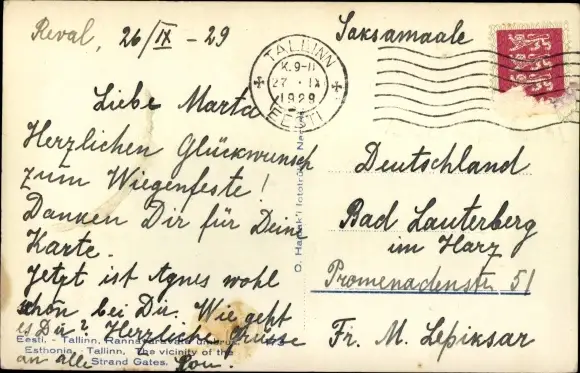 Reval, 26/IX - 29
Liebe Marta
Herzlichen Glückwunsch
zum Wiegenfeste!
Danken Dir für Deine
Karte.
Jetzt ist Agnes wohl
schon bei Dir. Wie geht
es Dir? Herzliche Grüsse
an alle
Eesti. - Tallinn.
Esthonia. - Tallinn. The vicinity of the
Strand Gates.
TALLINN
K. 9-11
27 IX
1929
EESTI
Saksamaale
Deutschland
Bad Lauterberg
im Harz
Promenadenstr 51
Fr. M. Lepiksar